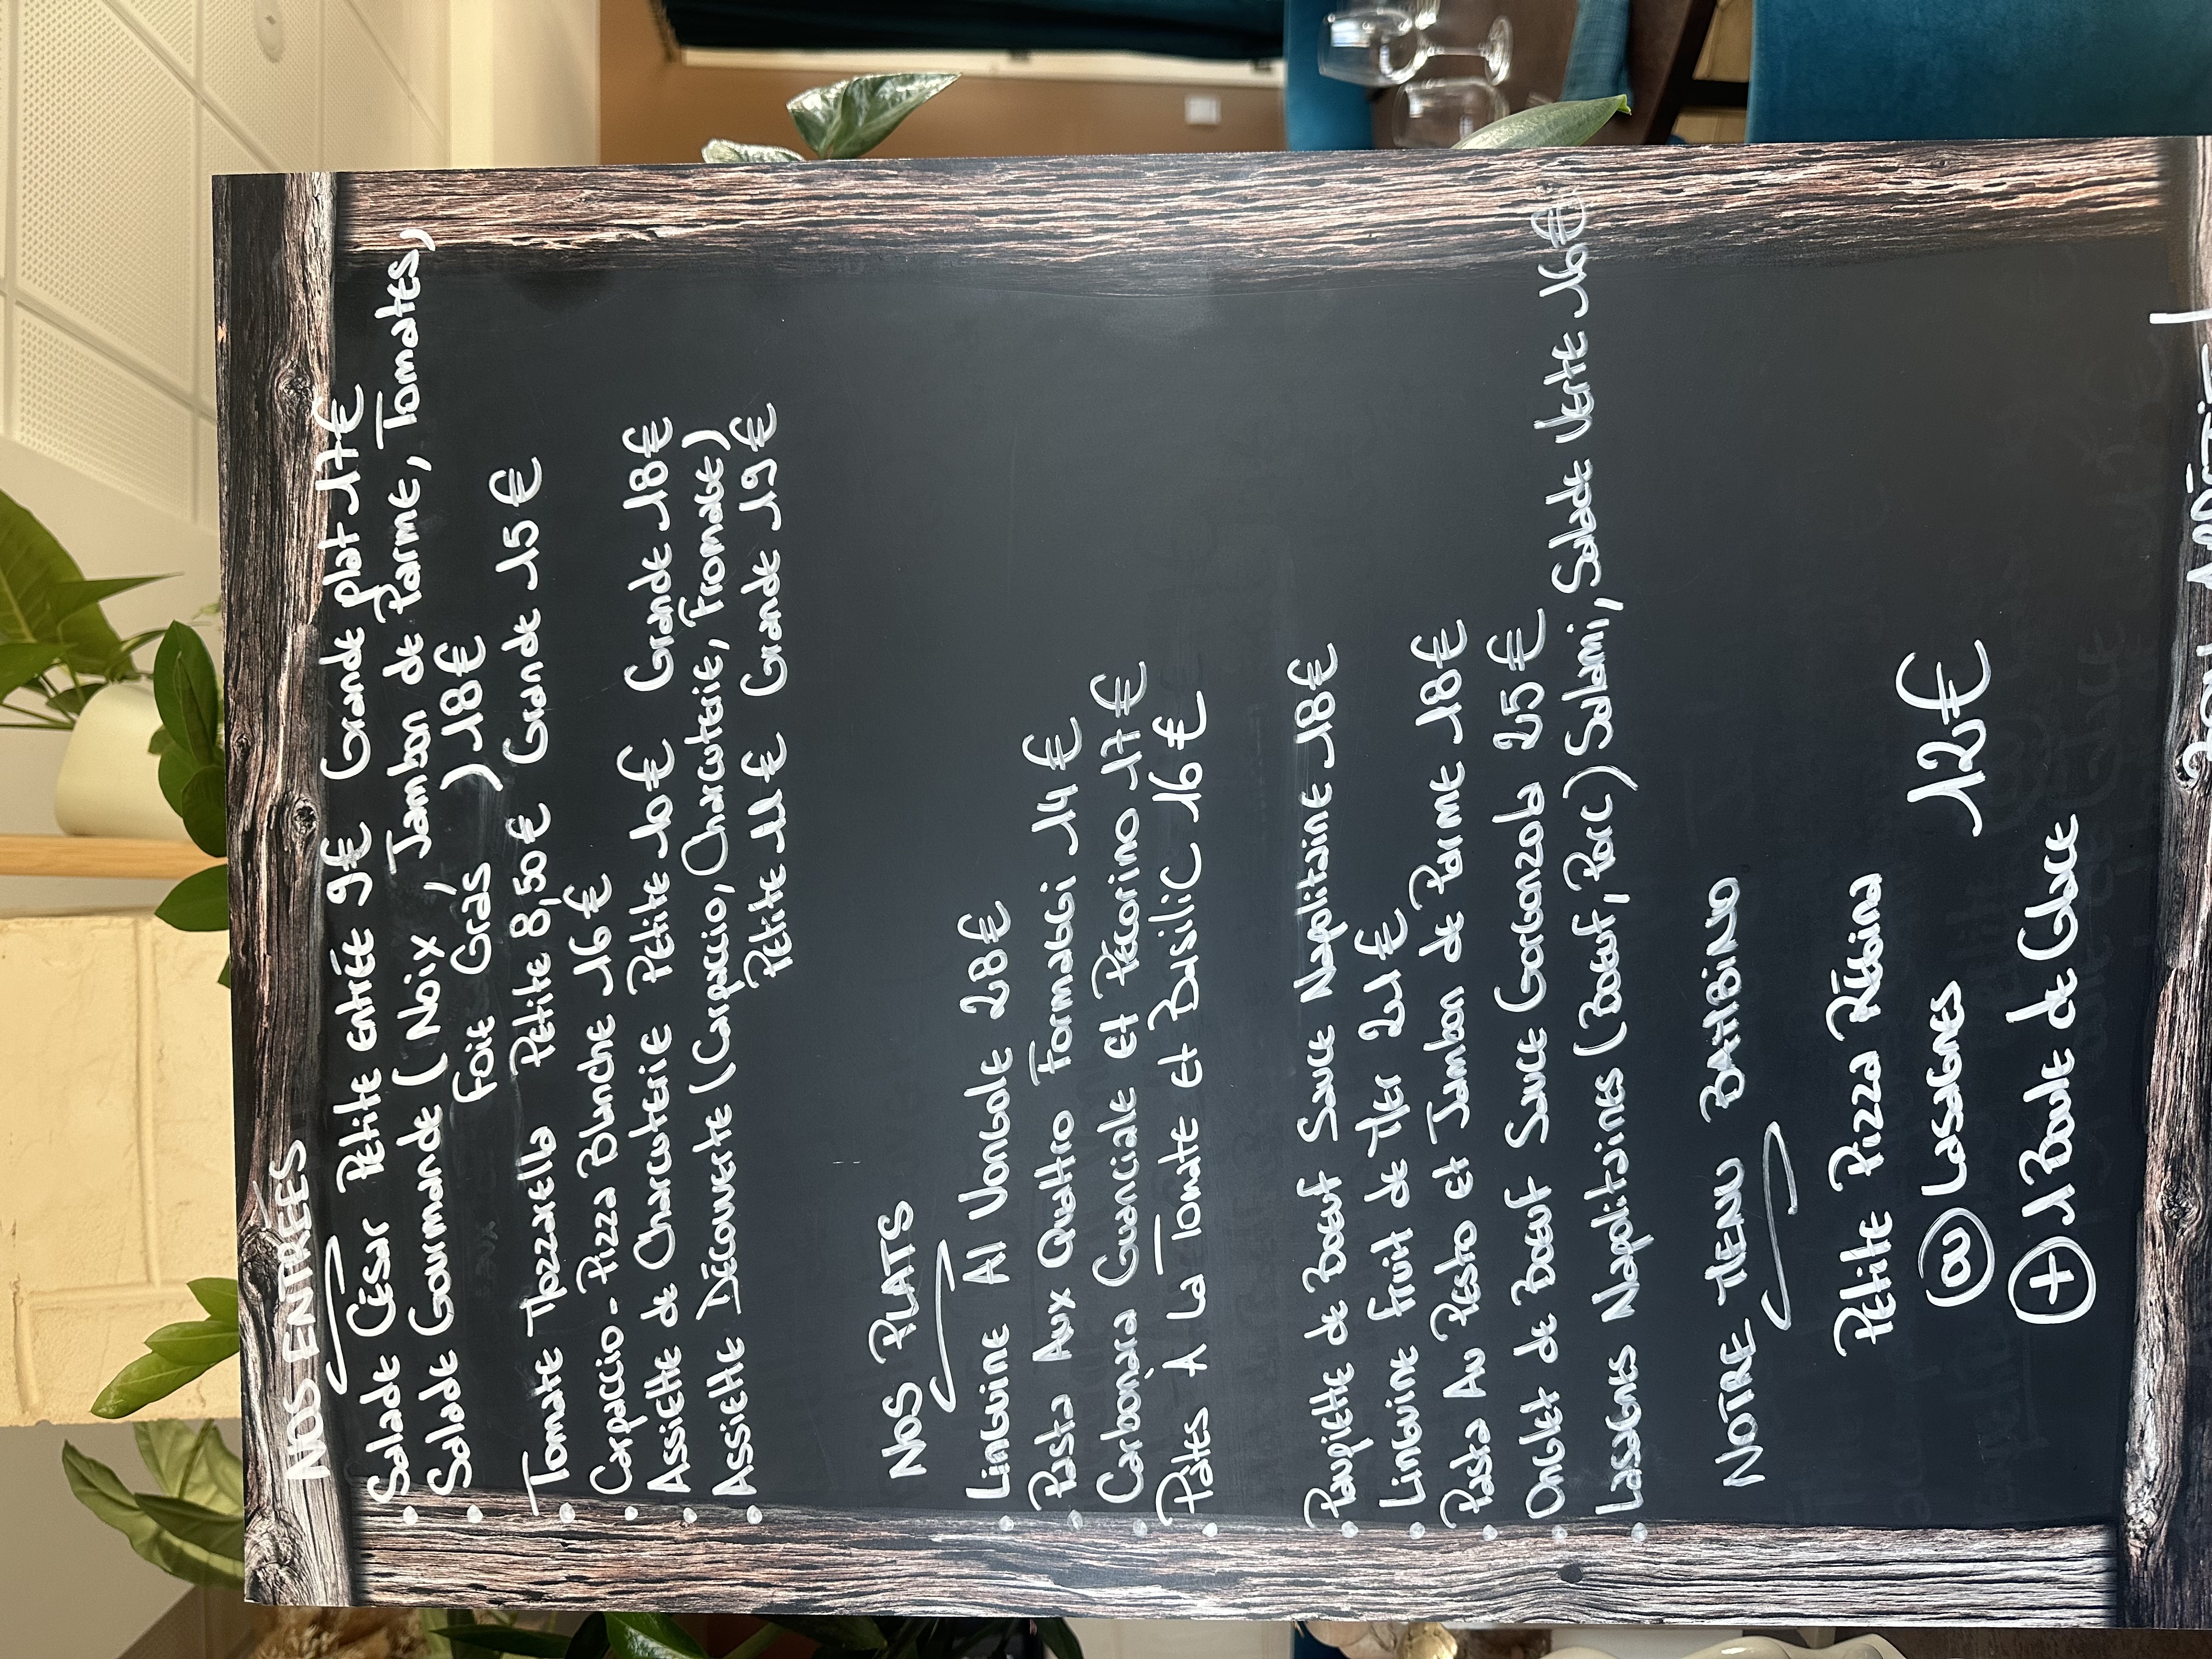 NOS ENTRÉES
• Salade César Petite entrée 9€ Grande plat 17€
• Salade Gourmande (Noix, Jambon de Parme, Tomates,
Foie Gras ) 18€
• Tomate Mozzarella Petite 8,50€ Grande 15€
• Carpaccio - Pizza Blanche 16€
• Assiette de Charcuterie Petite 10€ Grande 18€
• Assiette Découverte (Carpaccio, Charcuterie, Fromage)
Petite 11€ Grande 19€
NOS PLATS
• Linguine Al Vongole 28€
• Pasta Aux Quattro Formaggi 14€
• Carbonara Guanciale et Pécorino 17€
• Pâtes A La Tomate et Basilic 16€
• Paupiette de Boeuf Sauce Napolitaine 18€
• Linguine Fruit de Mer 21€
• Pasta Au Pesto et Jambon de Parme 18€
• Onglet de Boeuf Sauce Gorgonzola 25€
• Lasagnes Napolitaines (Boeuf, Porc) Salami, Salade Verte 16€
NOTRE MENU BAMBINO
Petite Pizza Régina
(ou) Lasagnes 12€
(+) 1 Boule de Glace